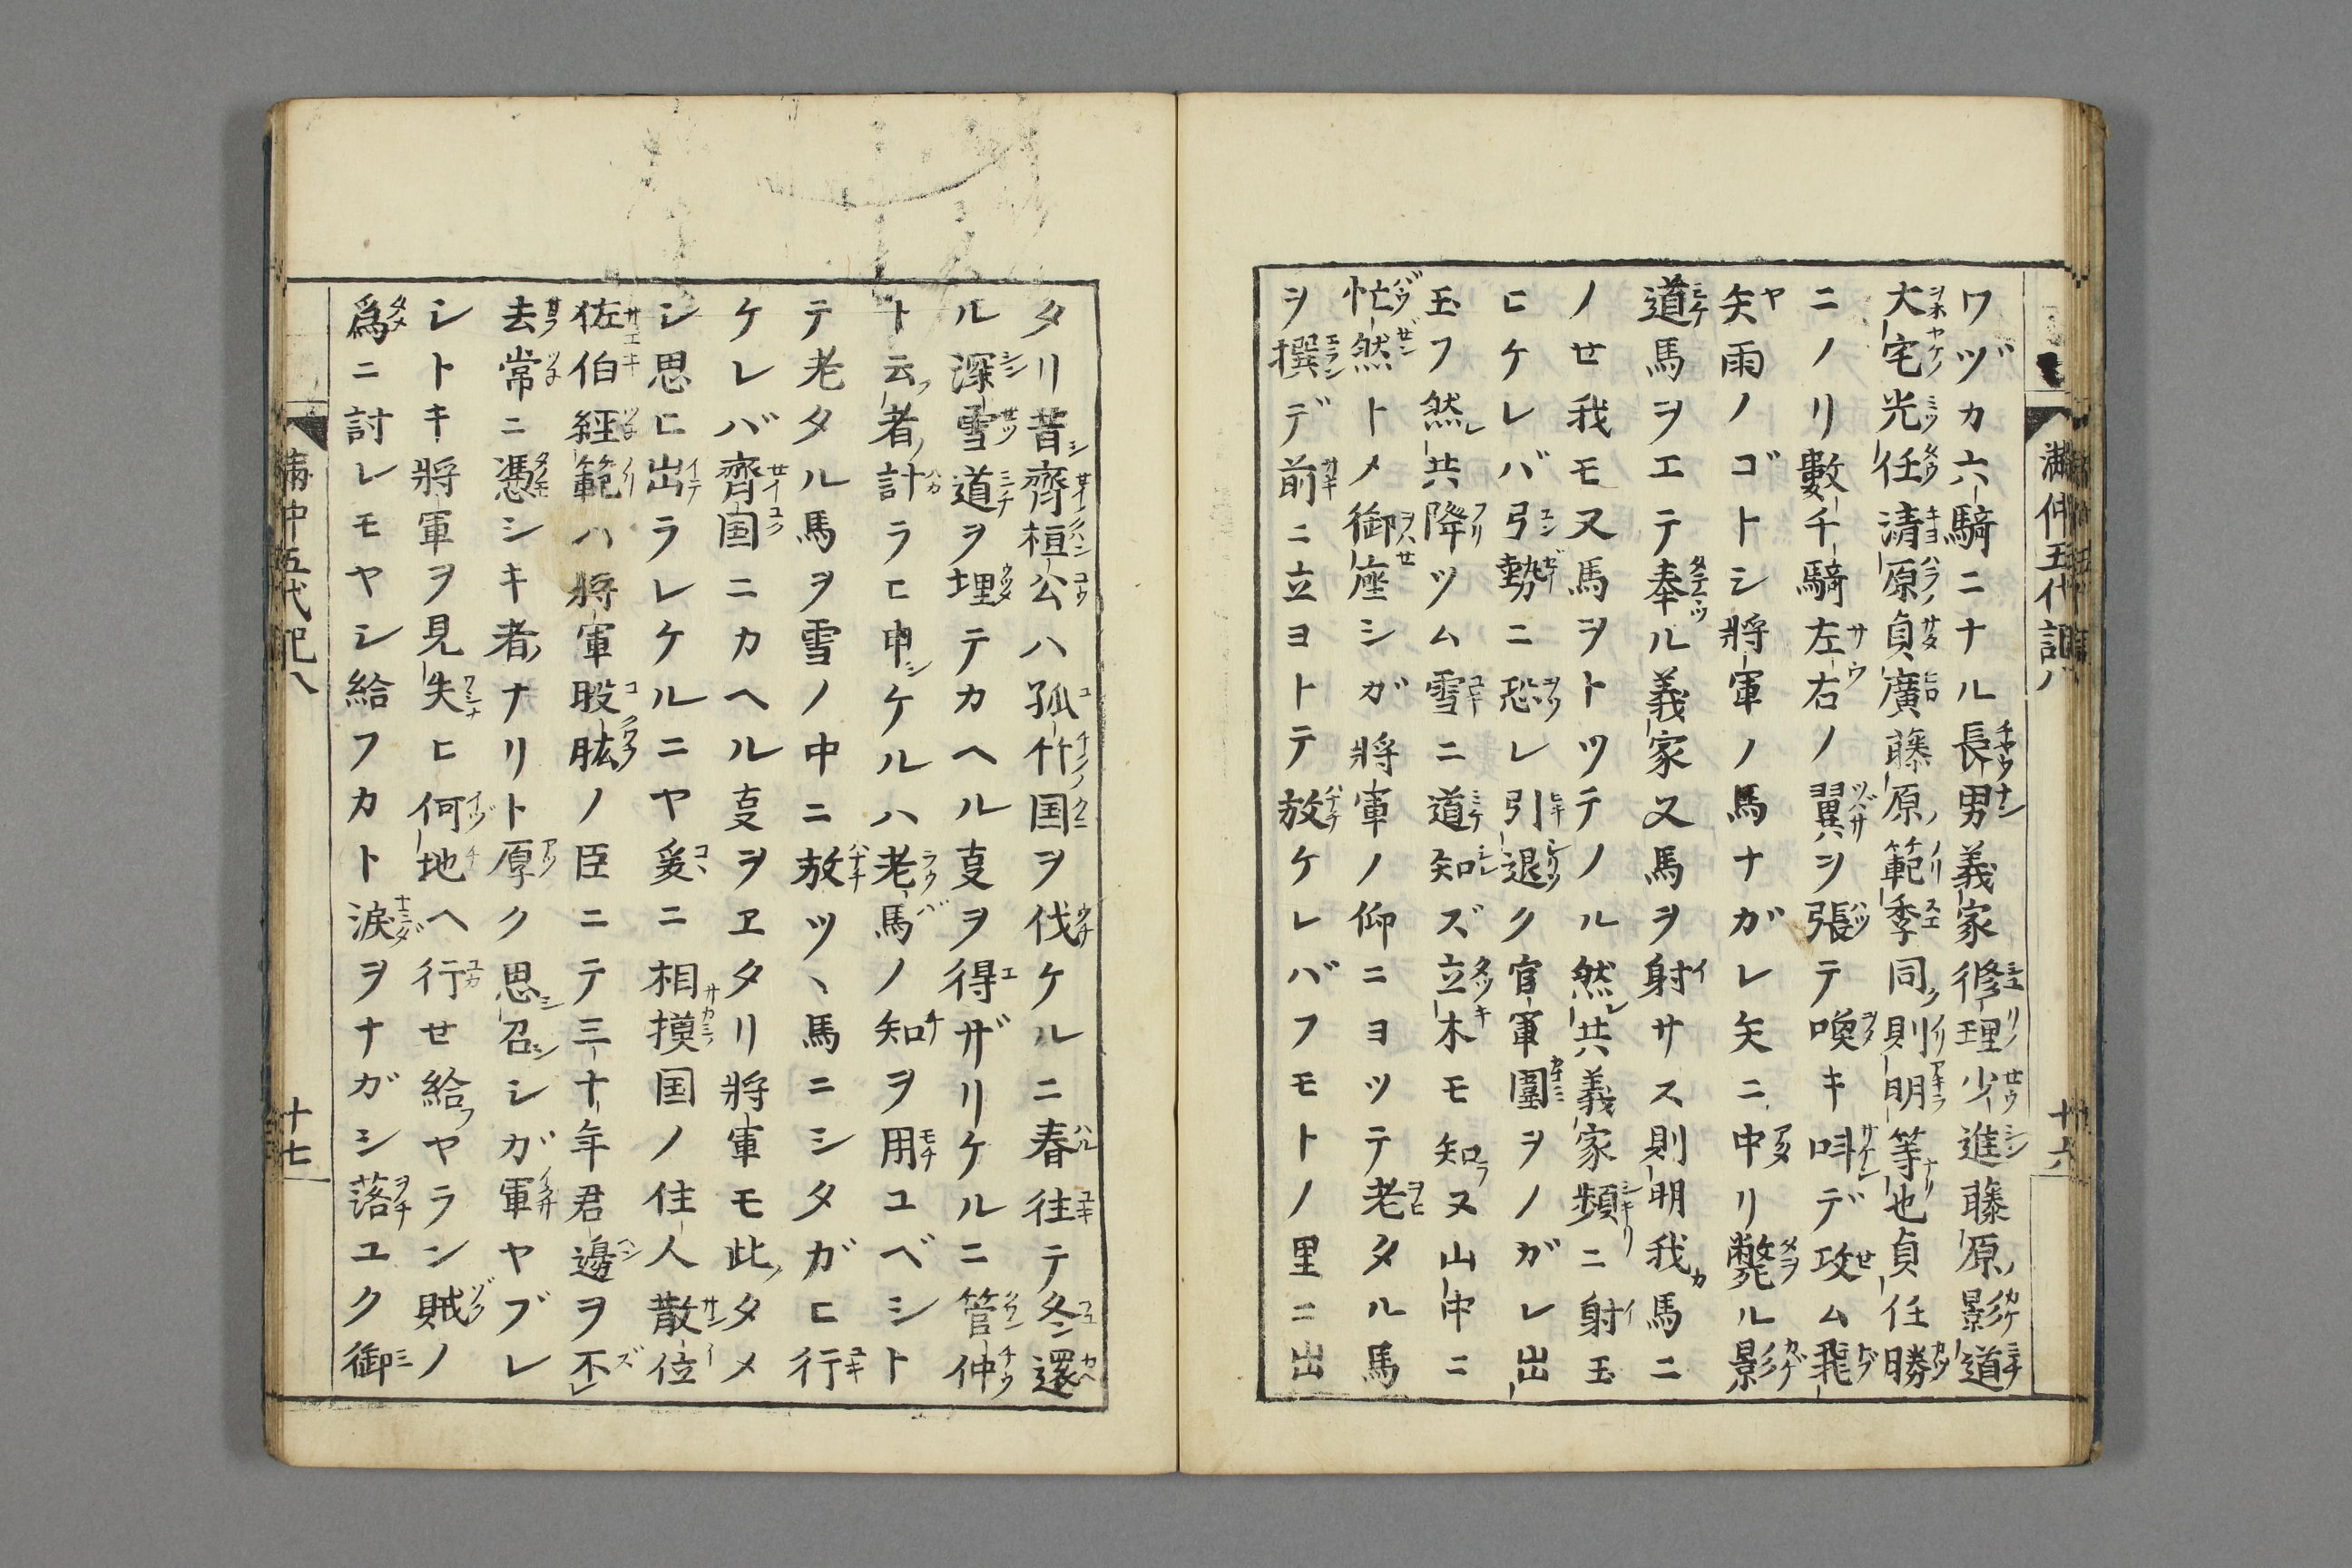 ワヅカ六騎ニナル長男義家修理少進藤原影道
大宅光任清原貞廣藤原範季同則明等也貞任勝
ニノリ數千騎左右ノ翼ヲ張テ喚キ呌デ攻ム飛
矢雨ノゴトシ將軍ノ馬ナガレ矢ニ中リ斃ル影
道馬ヲエテ奉ル義家又馬ヲ射サス則明我馬ニ
ノせ我モ又馬ヲトツテノル然共義家頻ニ射玉
ヒケレバ弓勢ニ恐レ引退ク官軍圍ヲノガレ出
玉フ然共降ツム雪ニ道知ズ立木モ知ヌ山中ニ
忙然トメ御座シガ將軍ノ仰ニヨツテ老タル馬
ヲ撰デ前ニ立ヨトテ放ケレバフモトノ里ニ出
滿仲五代記八
十六
タリ昔齊桓公ハ孤竹国ヲ伐ケルニ春往テ冬還
ル深雪道ヲ埋テカヘル叓ヲ得ザリケルニ管仲
ト云者計ラヒ申ケルハ老馬ノ知ヲ用ユベシト
テ老タル馬ヲ雪ノ中ニ放ツヽ馬ニシタガヒ行
ケレバ齊国ニカヘル叓ヲヱタリ將軍モ此タメ
シ思ヒ出ラレケルニヤ爰ニ相摸国ノ住人散位
佐伯經範ハ將軍股肱ノ臣ニテ三十年君邊ヲ不
去常ニ憑シキ者ナリト厚ク思召シガ軍ヤブレ
シトキ將軍ヲ見失ヒ何地ヘ行せ給ヤラン賊ノ
爲ニ討レモヤシ給フカト涙ヲナガシ落ユク御
滿中五代記八
十七